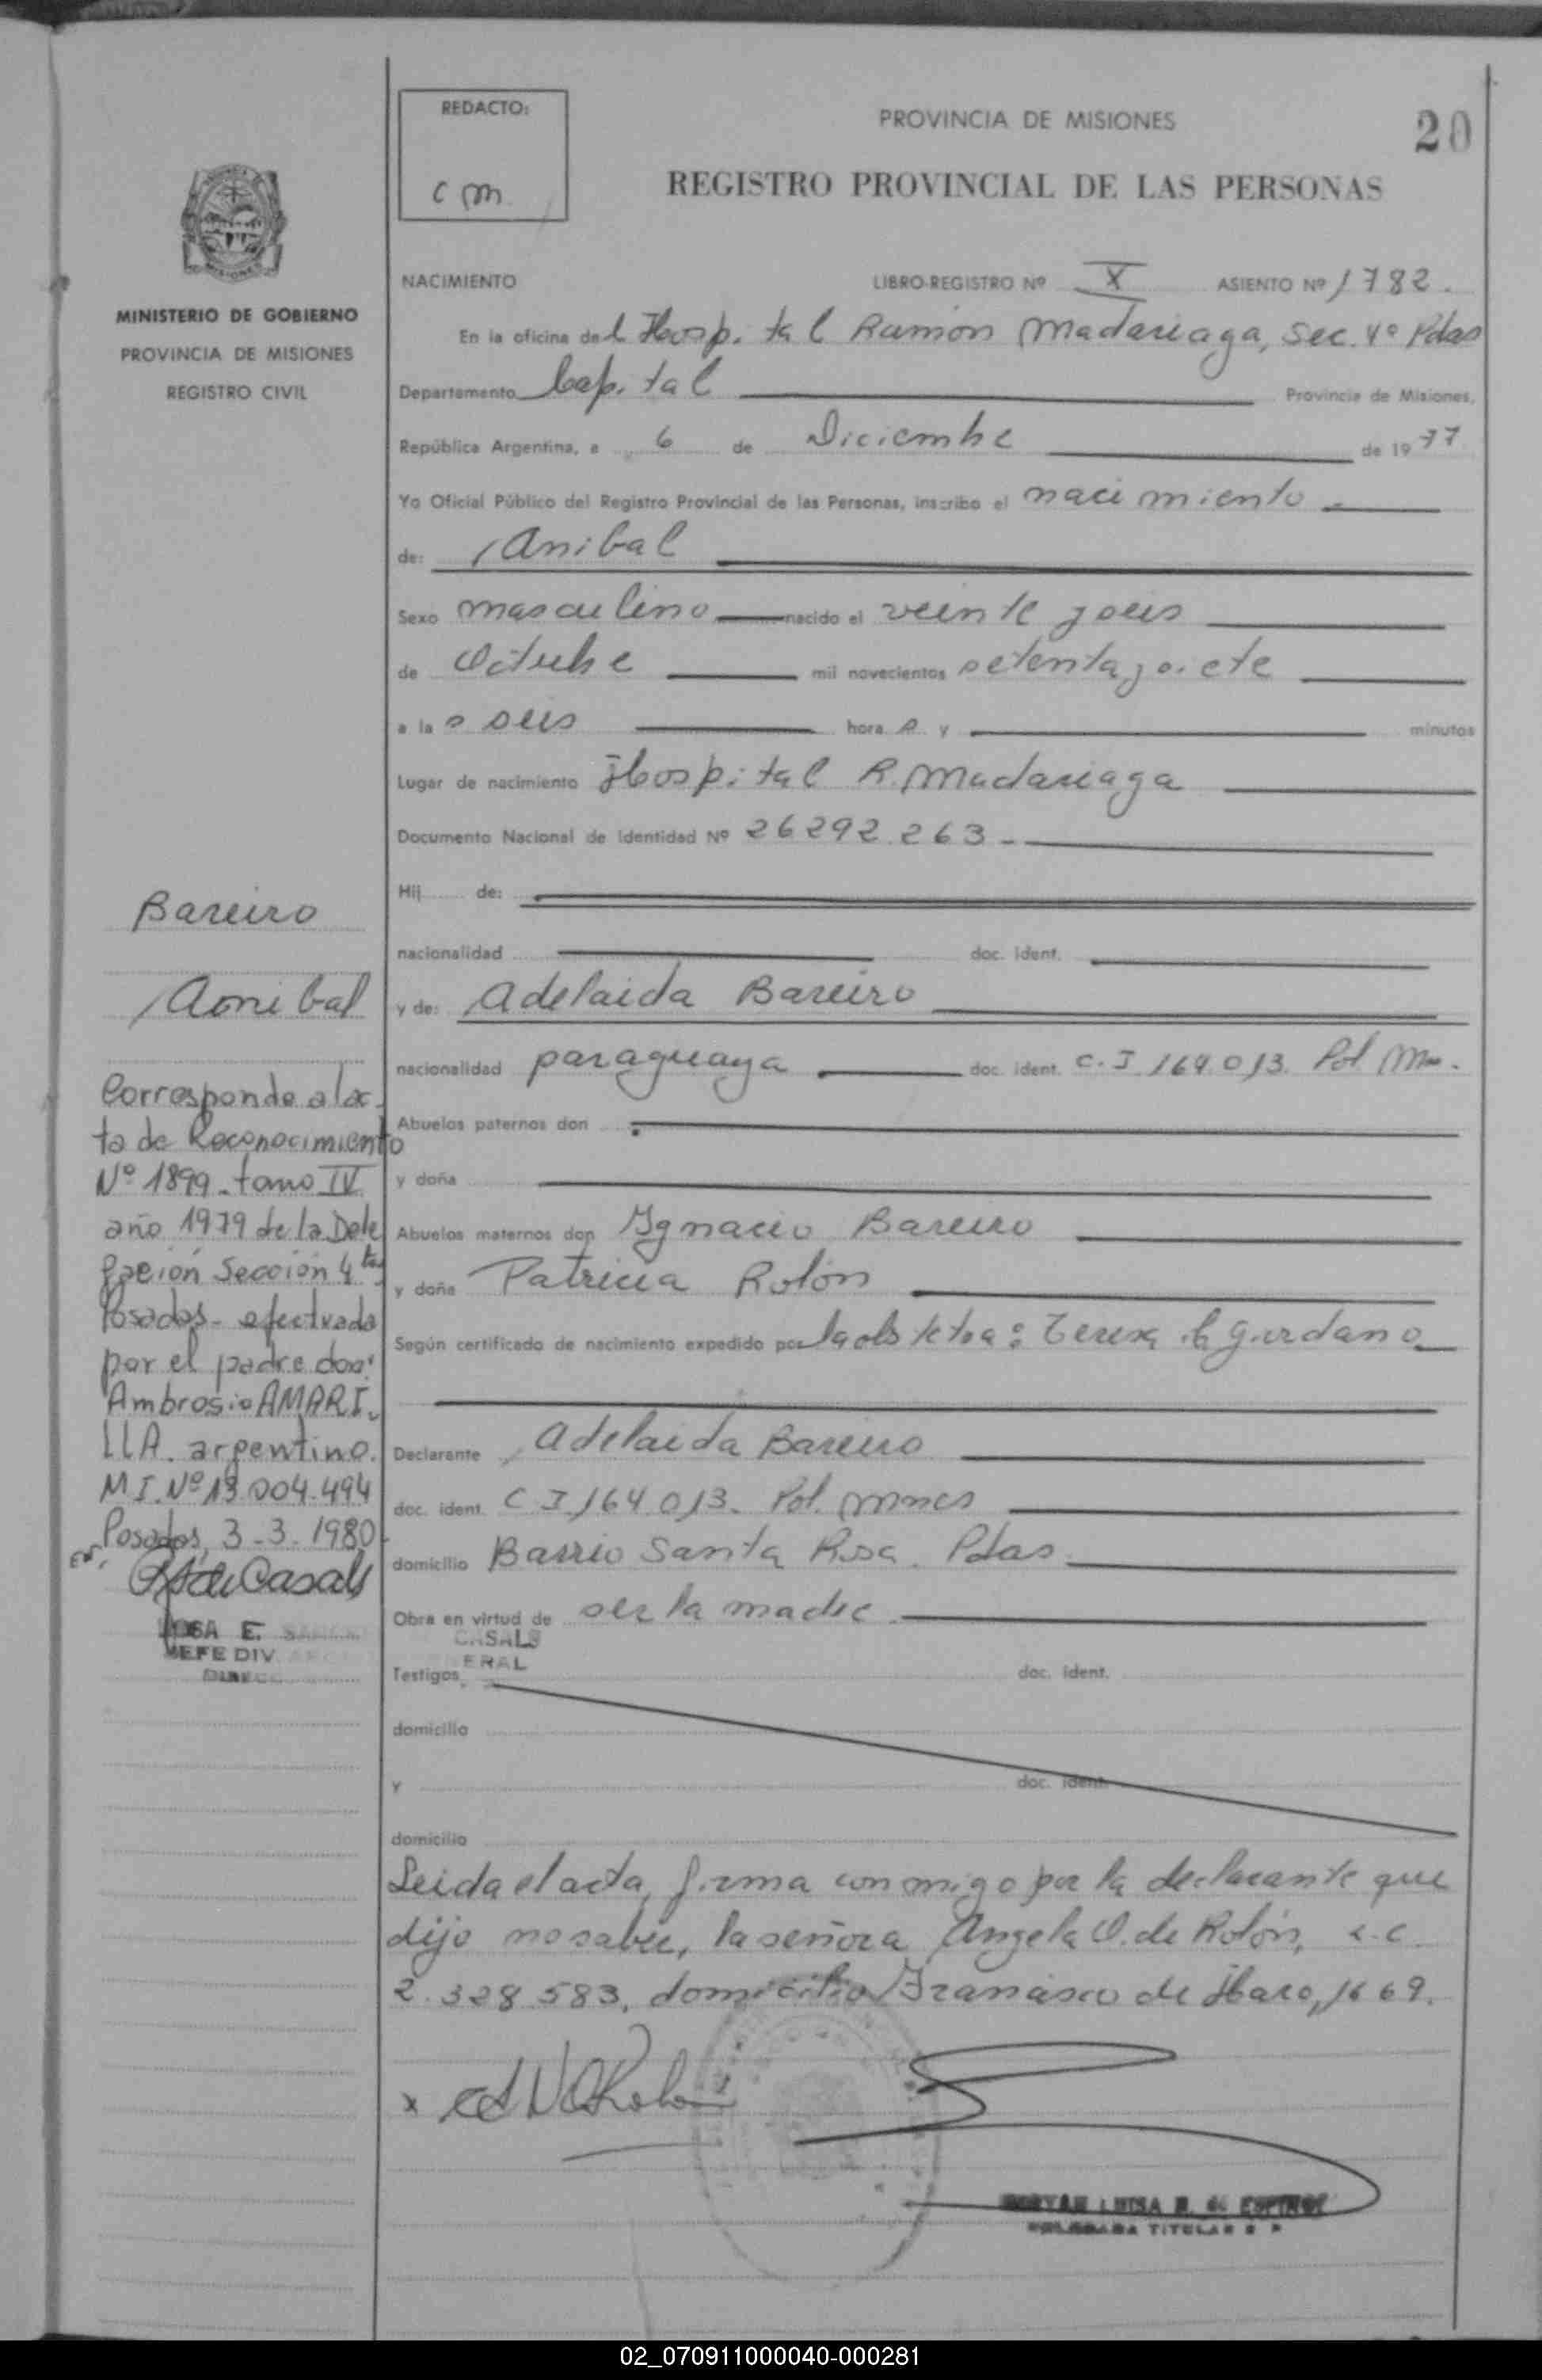 REDACTO:
C M
PROVINCIA DE MISIONES
20
REGISTRO PROVINCIAL DE LAS PERSONAS
MINISTERIO DE GOBIERNO
PROVINCIA DE MISIONES
REGISTRO CIVIL
NACIMIENTO LIBRO-REGISTRO Nº X ASIENTO Nº 1782.
En la oficina del Hospital Ramón Madariaga, Sec. 4º Pdas
Departamento Capital Provincia de Misiones,
República Argentina, a 6 de Diciembre de 1977
Yo Oficial Público del Registro Provincial de las Personas, inscribo el nacimiento
de: Anibal
Sexo masculino nacido el veinte y seis
de Octubre mil novecientos setenta y siete
a las seis horas y minutos
Lugar de nacimiento Hospital R. Madariaga
Documento Nacional de Identidad Nº 26292.263
Hij de:
nacionalidad doc. ident.
y de: Adelaida Bareiro
nacionalidad paraguaya doc. ident. C.I 164.013. Pol. Mnes.
Abuelos paternos don
y doña
Abuelos maternos don Ygnacio Bareiro
y doña Patricia Rolón
Según certificado de nacimiento expedido por la obstetra: Teresa Giordano
Declarante Adelaida Bareiro
doc. ident. C.I 164.013. Pol. Mnes
domicilio Barrio Santa Rosa. Pdas
Obra en virtud de ser la madre
CASALS
ERAL
Testigos doc. ident.
domicilio
y doc. ident.
domicilio
Leida el acta, firma conmigo por la declarante que
dijo no saber, la señora Angela V. de Rolón, L.C.
2.328.583, domicilio Francisco de Haro, 1669.
Bareiro
Anibal
Corresponde al ac-
ta de Reconocimiento
Nº 1899 - tomo IV
año 1979 de la Dele
gación Sección 4ta
Posadas - efectuada
por el padre don:
Ambrosio AMARI-
LLA. argentino.
M I. Nº 13.004.494
Posadas, 3-3-1980
ROSA E.
JEFE DIV
DIRECC
LUISA E. de ESPINOZA
DELEGADA TITULAR
02_070911000040-000281